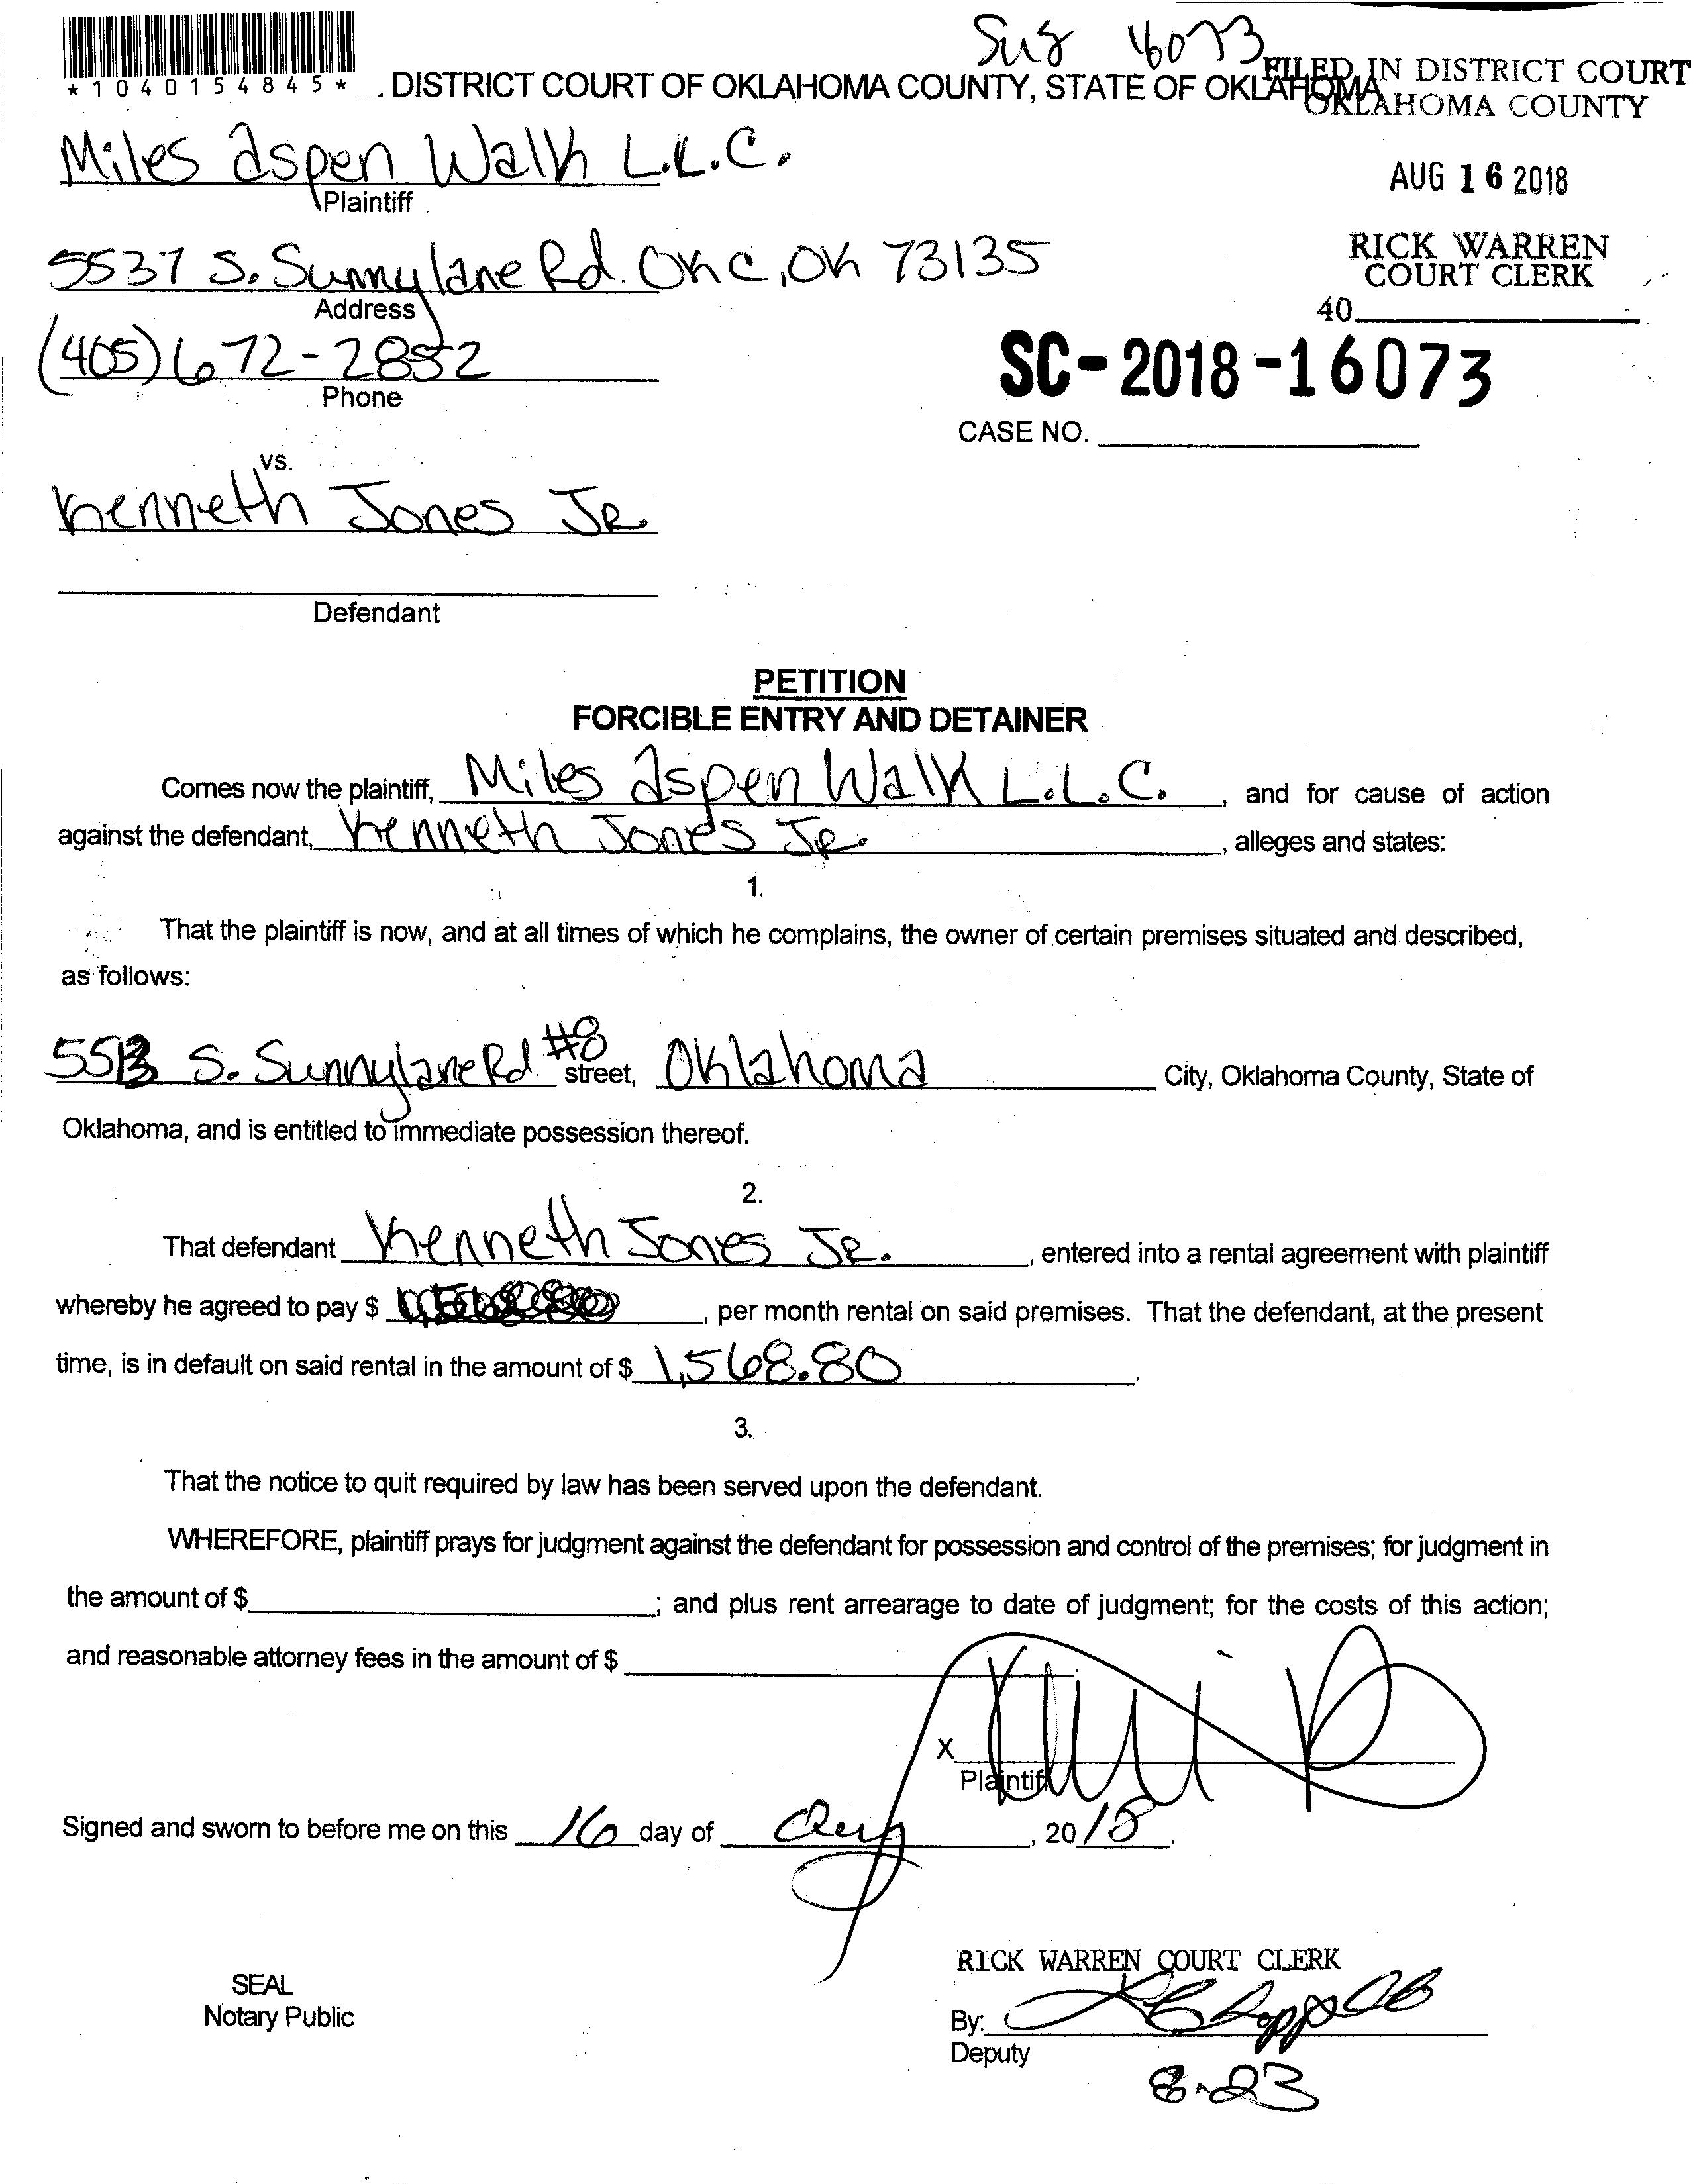 Sug 16073
*1040154845*
DISTRICT COURT OF OKLAHOMA COUNTY, STATE OF OKLAHOMA
FILED IN DISTRICT COURT
OKLAHOMA COUNTY
Miles aspen Walk L.L.C.
Plaintiff
AUG 16 2018
5537 S. Sunnylane Rd. OKC, OK 73135
Address
RICK WARREN
COURT CLERK
40
(405) 672-2852
Phone
SC-2018-16073
CASE NO.
vs.
Kenneth Jones JR.
Defendant
PETITION
FORCIBLE ENTRY AND DETAINER
Comes now the plaintiff, Miles aspen Walk L.L.C., and for cause of action
against the defendant, Kenneth Jones JR., alleges and states:
1.
That the plaintiff is now, and at all times of which he complains, the owner of certain premises situated and described,
as follows:
5513 S. Sunnylane Rd. #8 street, Oklahoma City, Oklahoma County, State of
Oklahoma, and is entitled to immediate possession thereof.
2.
That defendant Kenneth Jones JR., entered into a rental agreement with plaintiff
whereby he agreed to pay $ , per month rental on said premises. That the defendant, at the present
time, is in default on said rental in the amount of $ 1,568.80.
3.
That the notice to quit required by law has been served upon the defendant.
WHEREFORE, plaintiff prays for judgment against the defendant for possession and control of the premises; for judgment in
the amount of $ ; and plus rent arrearage to date of judgment; for the costs of this action;
and reasonable attorney fees in the amount of $
X
Plaintiff
Signed and sworn to before me on this 16 day of Aug, 2018.
RICK WARREN COURT CLERK
SEAL
Notary Public
By:
Deputy
8-23